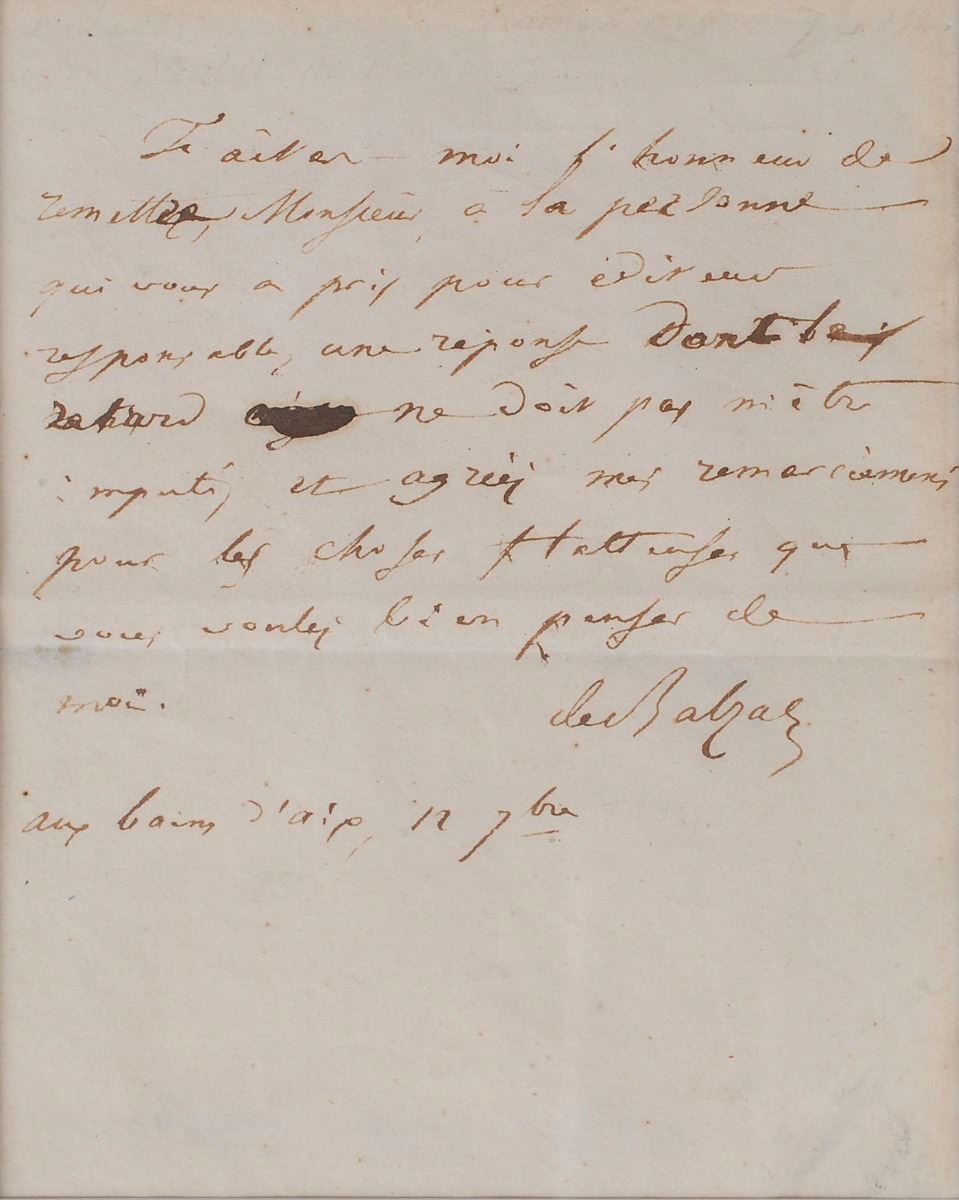 Faites-moi l'honneur de
remettre, Monsieur, à la personne
qui vous a pris pour éditeur
responsable, une réponse dont le
retard ne doit pas m'être
imputé, et agréez mes remerciemens
pour les choses flatteuses que
vous voulez bien penser de
moi.
de Balzac
aux bains d'aix, 12 7bre